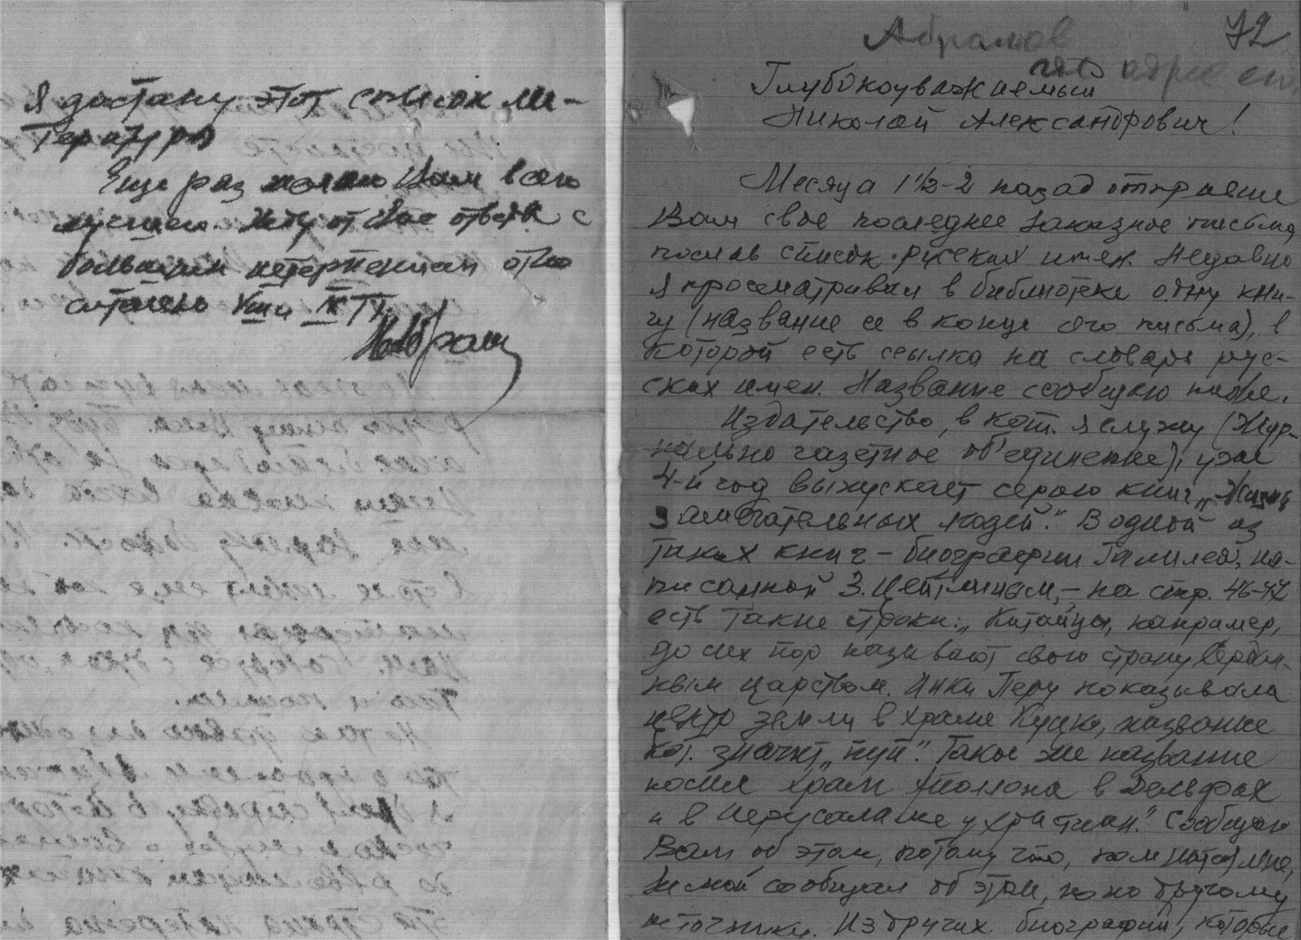 я достану этот список ли-
тературы
Еще раз желаю Вам всего
лучшего. Жду от Вас ответа с
большим нетерпением
VIII и IX тт.
НАбрам
Абрамов
72
Глубокоуважаемый
Николай Александрович!
Месяца 1½-2 назад отправил
Вам свое последнее заказное письмо,
послав список русских имен. Недавно
я просматривал в библиотеке одну кни-
гу (название ее в конце этого письма), в
которой есть ссылка на словарь рус-
ских имен. Название сообщаю ниже.
Издательство, в кот. я служу (Жур-
нально газетное об'единение), уже
4-й год выпускает серию книг „Жизнь
замечательных людей". В одной из
таких книг – биографии Галилея, на-
писанной З. Цейтлиным, – на стр. 46-47
есть такие строки: „Китайцы, например,
до сих пор называют свою страну Средин-
ным царством. Инки Перу показывали
центр земли в храме Куцко, название
кот. значит „пуп". Такое же название
носил храм Аполлона в Дельфах
и в Иерусалиме у христиан." Сообщаю
Вам об этом, потому что, помнится мне,
Вы мной сообщал об этом, но по другому
источнику. Из других биографий, которые